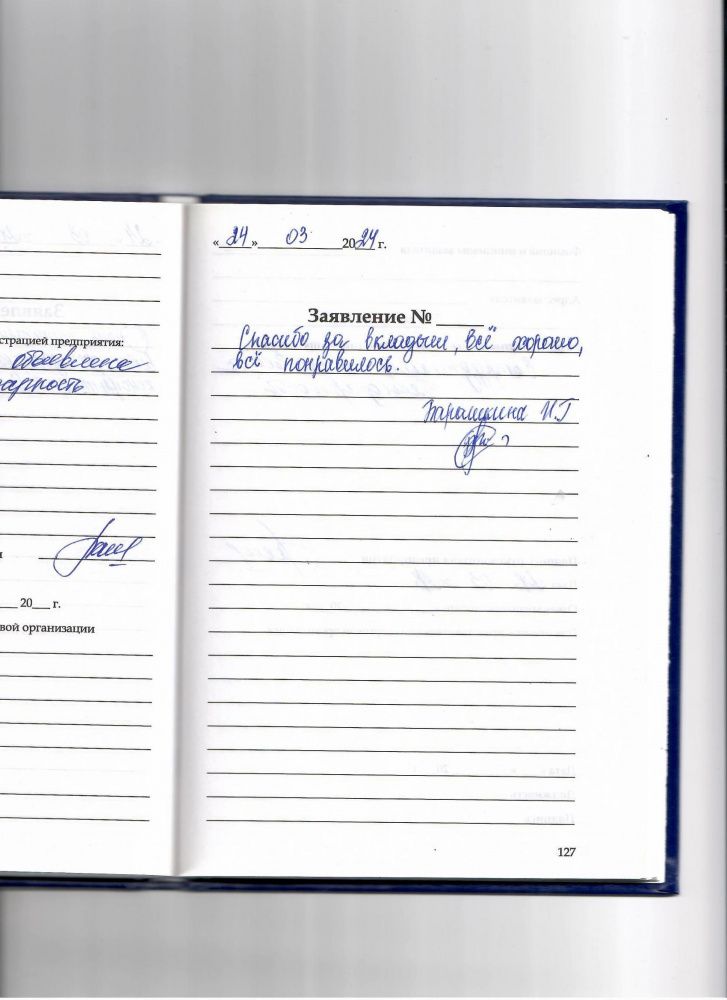 страцией предприятия:
объявлена
20___ г.
вой организации
«24» 03 2024 г.
Заявление № ____
Спасибо за вкладыши, всё хорошо,
всё понравилось.
И.Г
127